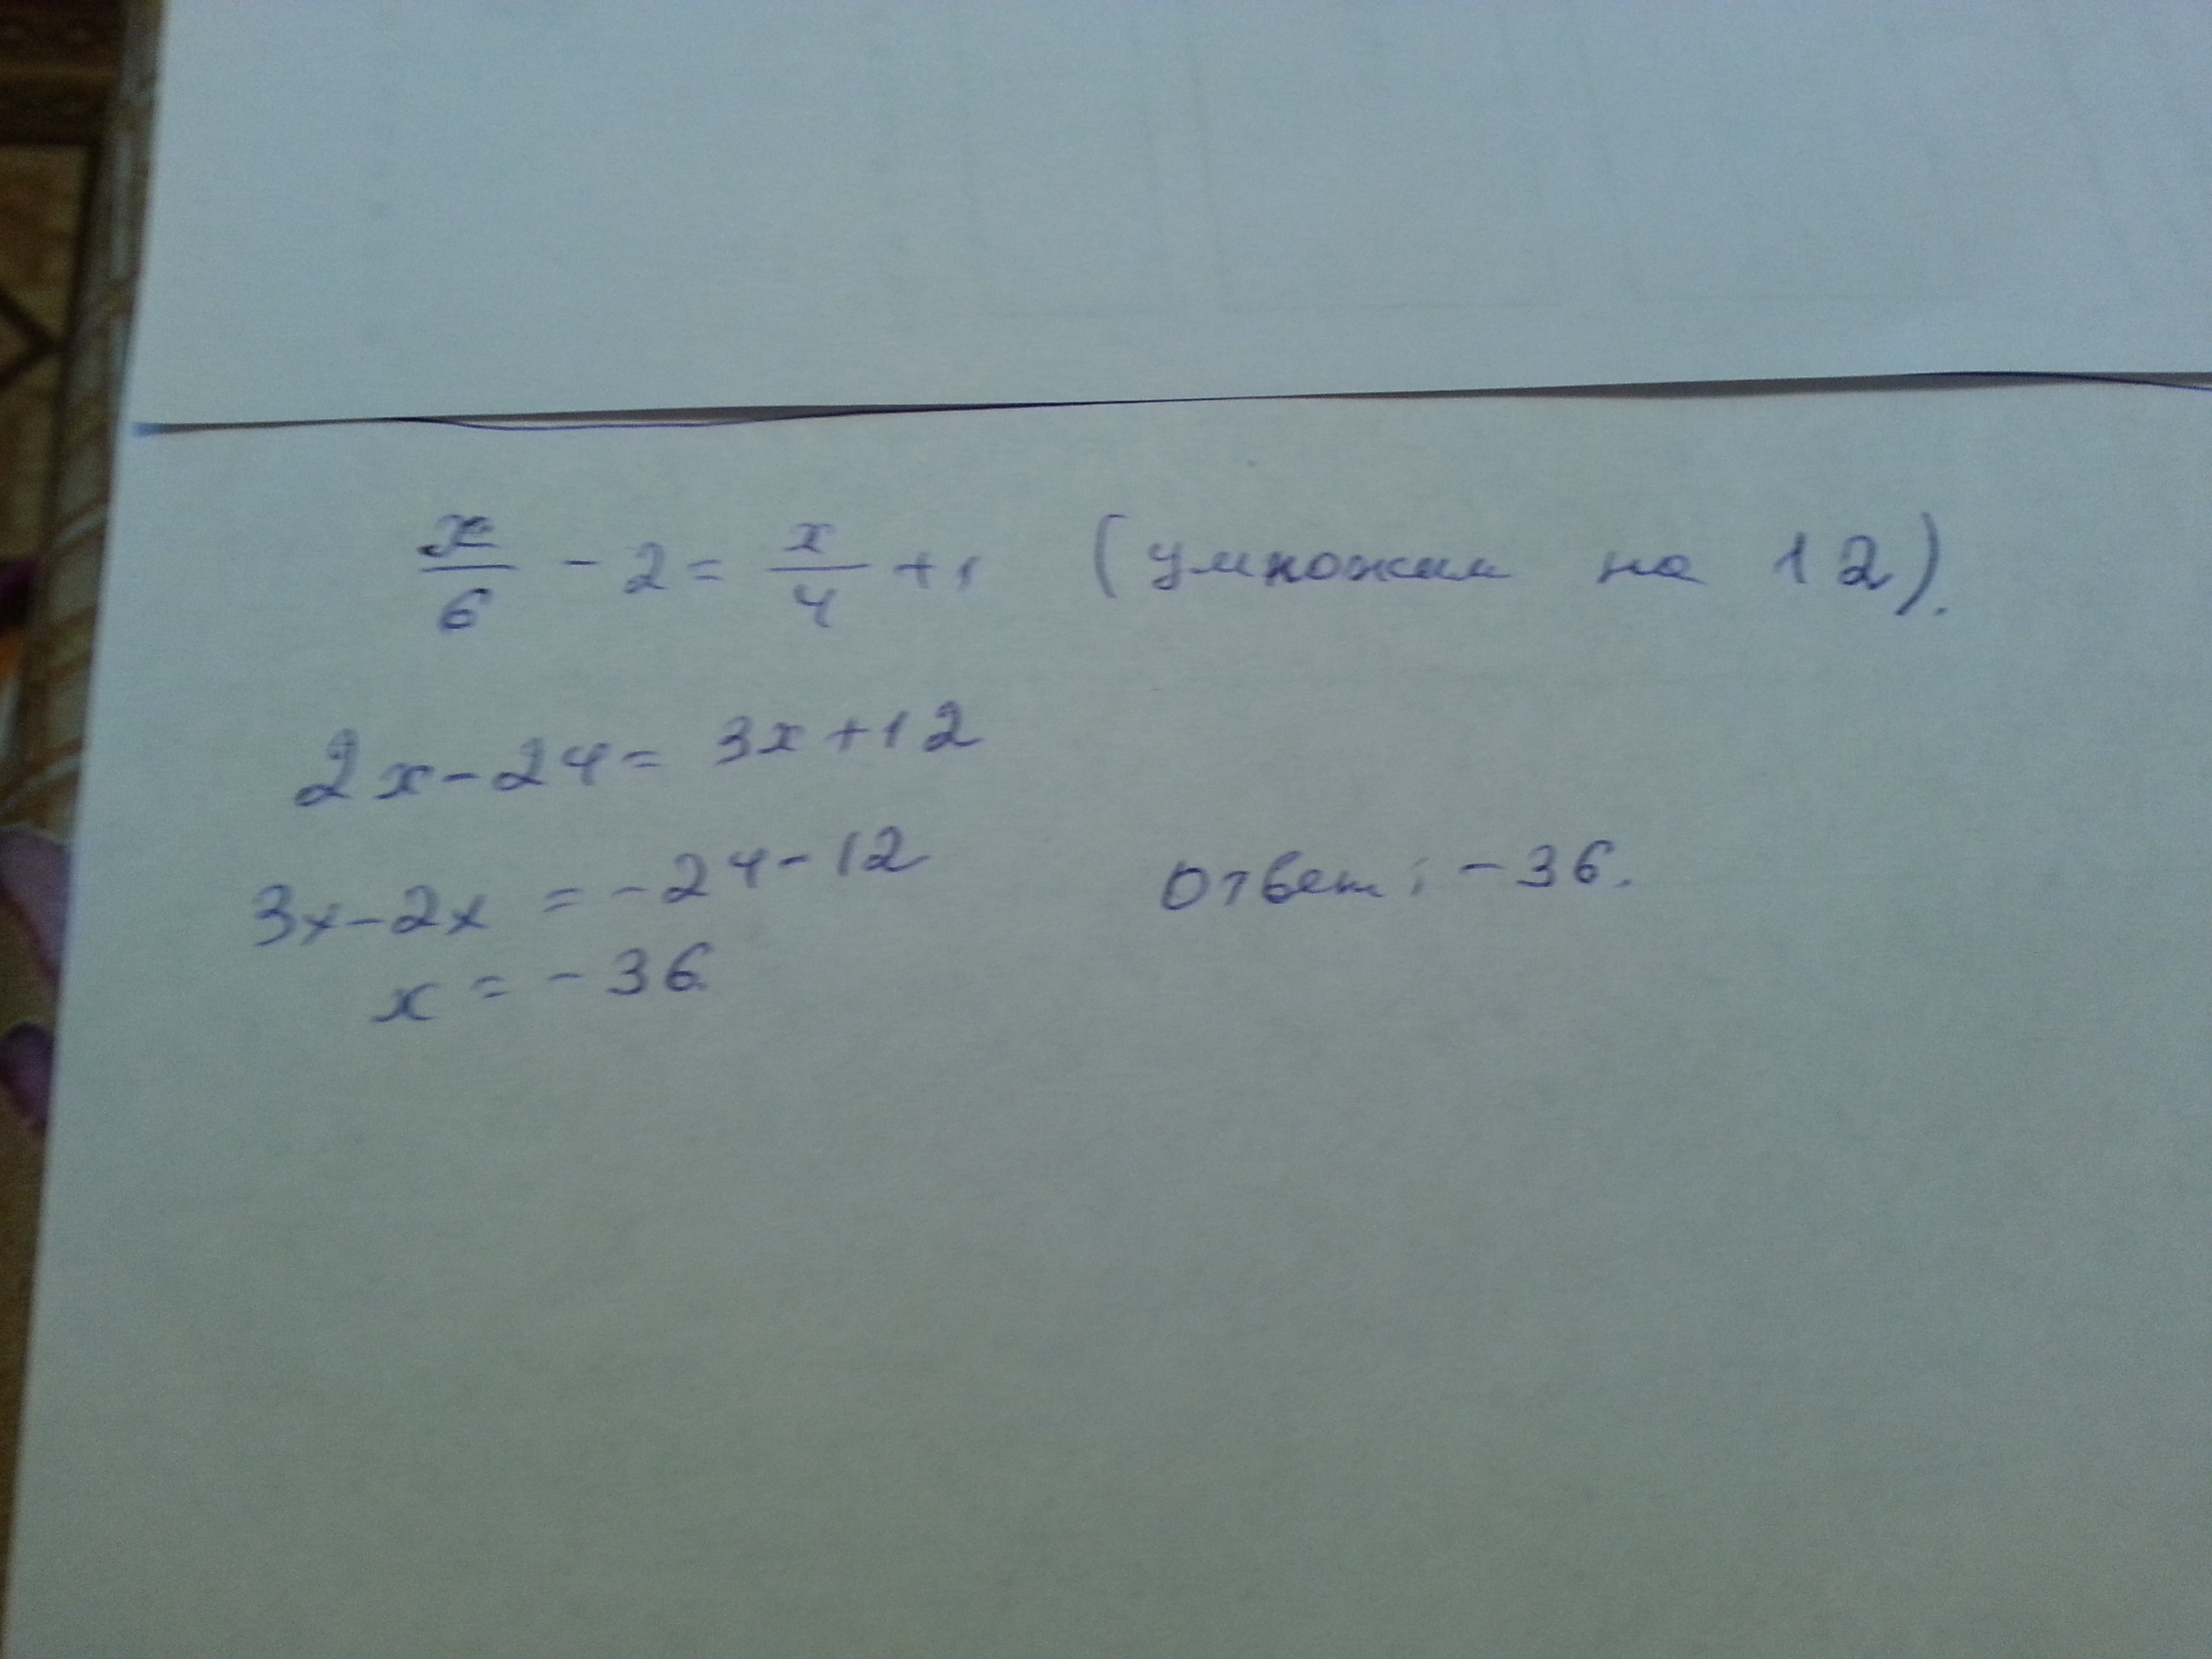 x/6 - 2 = x/4 + 1 (умножим на 12).
2x - 24 = 3x + 12
3x - 2x = -24 - 12
Ответ: -36.
x = -36